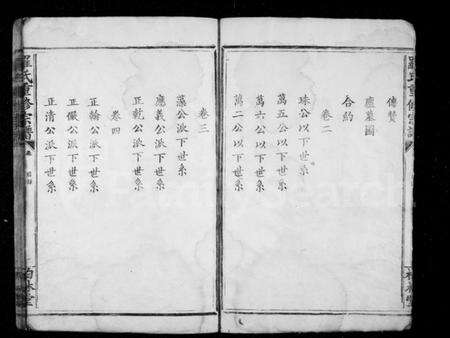 羅氏重修宗譜
傳贊
廬墓圖
合約
卷二
珠公以下世系
萬五公以下世系
萬六公以下世系
萬二公以下世系
卷三
藻公派下世系
應義公派下世系
正乾公派下世系
卷四
正綸公派下世系
正儼公派下世系
正清公派下世系
羅氏重修宗譜